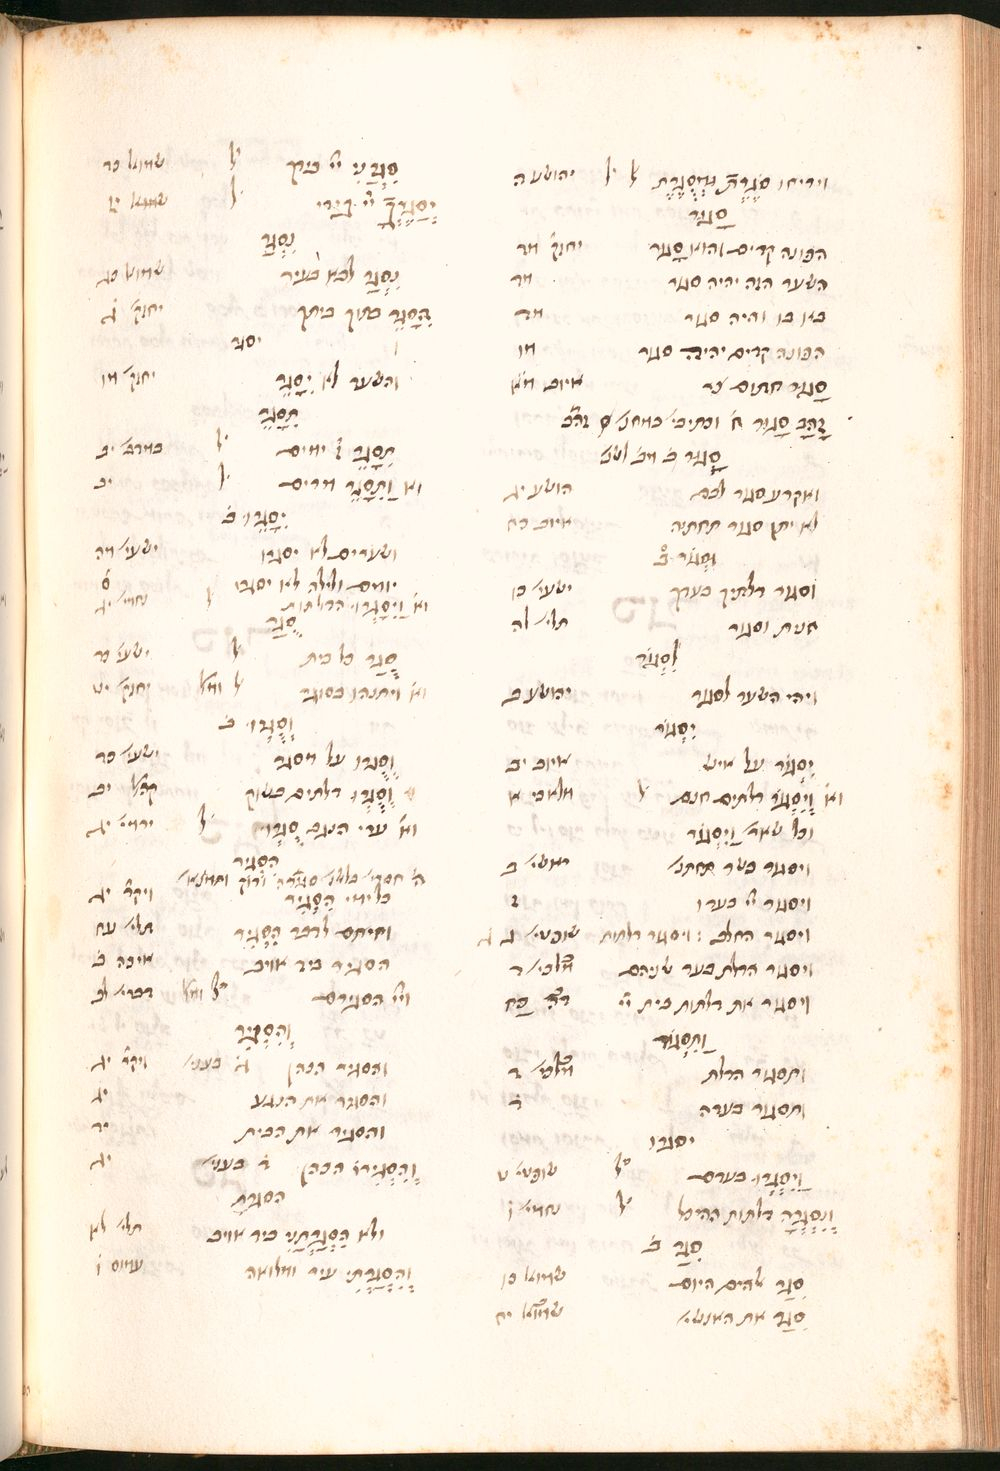 ויריחו סֹגֶרֶת וּמְסֻגֶּרֶת ל ל יהושע ה
סָגוּר
הפונה קדים והוא סָגוּר יחזק׳ מד
השער הזה יהיה סגור מד
באו בו והיה סגור מד
הפונה קדים יהיה סגור מו
סָגוּר חותם צר איוב מא
סְגוֹר ב׳
ואקרע סגור לבם הושע יג
לא יתן סגור תחתיה איוב כח
וּסְגוֹר ב
וסגור דלתיך בעדך ישעי׳ כו
חנית וסגור תלי׳ לה
לִסְגּוֹר
ויהי השער לסגור יהושע ב
יִסְגּוֹר
יִסְגּוֹר על איש איוב יב
וא׳ וְיִסְגּוֹר דלתים חנם ל מלאכי א
וכל שאר׳ וַיִּסְגּוֹר
ויסגור בשר תחתנ׳ ראשי׳ ב
ויסגור יי בעדו ז
ויסגור החלב : ויסגור דלתות שופטי׳ ג ג
ויסגור הדלת בעד שניהם מלכי׳ ד
ויסגור את דלתות בית יי כח
וַתִּסְגּוֹר
ותסגור הדלת מלכי׳ ד
ותסגור בעדה ד
יסגרו
וַיִּסְגְּרוּ בעדם ל שופטי׳ ט
וְנִסְגְּרָה דלתות ההיכל ל נחמי׳ ו
סִגַּר ב׳
סִגַּר אלהים היום שמוא׳ כו
סִגַּר את האנשי׳ שמוא׳ יח
סִגְּרַנִי יי בידך ל שמוא׳ כד
יְסַגֶּרְךָ יי בידי ל שמוא׳ יז
נִסְגַּר
נִסְגַּר לבא בעיר שמוא׳ כג
הִסָּגֵר בתוך ביתך יחזק׳ ג
יסגר
והשער לא יִסָּגֵר יחזק׳ מו
תִּסָּגֵר
תִּסָּגֵר ז׳ ימים ל במדב׳ יב
וא׳ וַתִּסָּגֵר מרים ל יב
יִסָּגְרוּ ב׳
ושערים לא יסגרו ישעי׳ מה
יומם ולילה לא יסגרו ס
וא׳ וַיִּסָּגְרוּ הדלתות ל נחמי׳ יג
סֻגַּר
סֻגַּר כל בית ל ישעי׳ כד
וא׳ ויתנהו בסוגר ל יחזק׳ יט
וְסֻגְּרוּ ב׳
וְסֻגְּרוּ על מסגר ישעי׳ כד
וְסֻגְּרוּ דלתים בשוק קהל׳ יב
וא׳ ערי הנגב סֻגְּרוּ ל ירמי׳ יג
הִסְגִּיר
כל ימי הִסְגִּיר ויקר׳ יד
וחיתם לדבר הִסְגִּיר תלי׳ עח
הסגיר ביד אויב איכה ב
ויי הסגירם דברי׳ לב
וְהִסְגִּיר
והסגיר הכהן בעני׳ ויקר׳ יג
והסגיר את הנגע יג
והסגיר את הבית יד
וְהִסְגִּירוֹ הכהן ד בעני׳ יג
הסגרת
ולא הִסְגַּרְתַּנִי ביד אויב תלי׳ לא
וְהִסְגַּרְתִּי עיר ומלואה עמוס ו